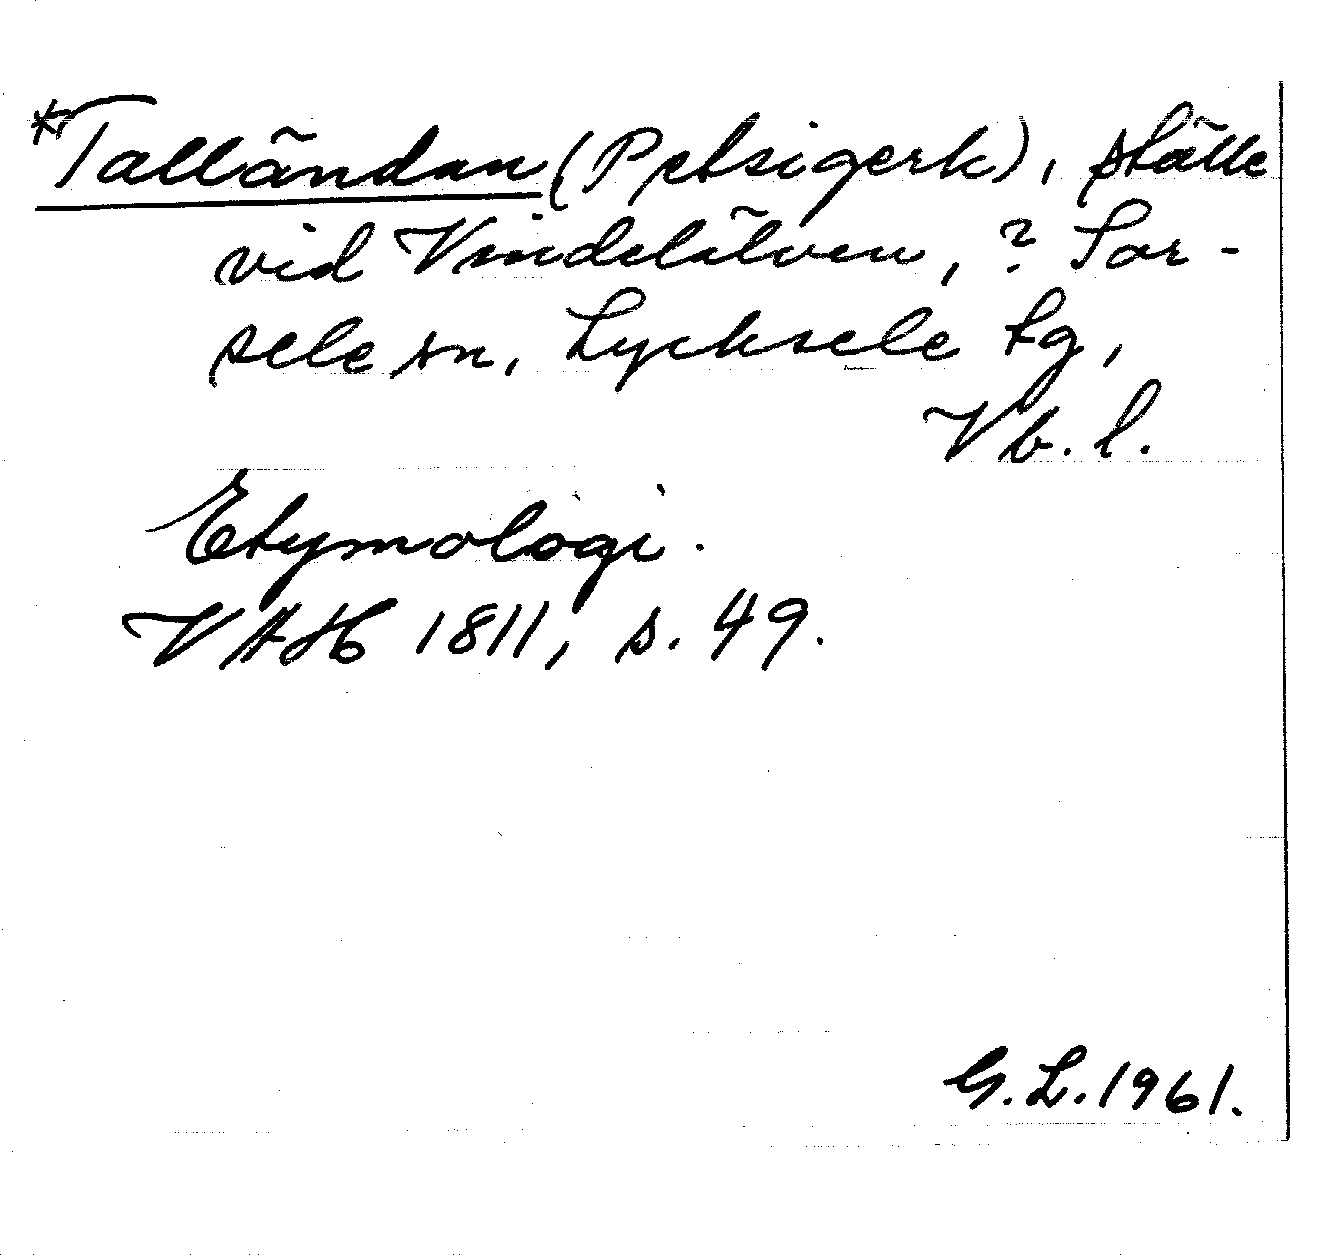 *Talländan (Petsigerk), ställe
vid Vindelälven, ? Sor-
sele sn, Lycksele tg,
Vb. l.
Etymologi.
VAH 1811, s. 49.
G. L. 1961.